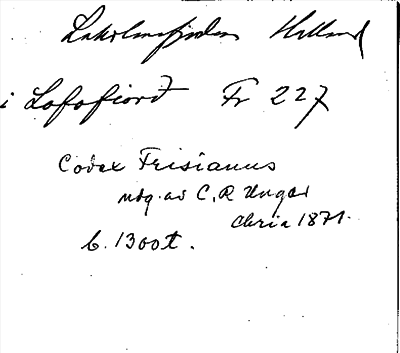 Laholmsfjorden Halland
i Lofofiord Fr 227
Codex Frisianus
utg. av C. R Unger
Chria 1871.
b. 1300 t.